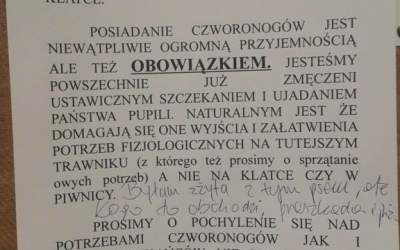 KLATCE.
POSIADANIE CZWORONOGÓW JEST
NIEWĄTPLIWIE OGROMNĄ PRZYJEMNOŚCIĄ
ALE TEŻ OBOWIĄZKIEM. JESTEŚMY
POWSZECHNIE JUŻ ZMĘCZENI
USTAWICZNYM SZCZEKANIEM I UJADANIEM
PAŃSTWA PUPILI. NATURALNYM JEST ŻE
DOMAGAJĄ SIĘ ONE WYJŚCIA I ZAŁATWIENIA
POTRZEB FIZJOLOGICZNYCH NA TUTEJSZYM
TRAWNIKU (z którego też prosimy o sprzątanie
owych potrzeb) A NIE NA KLATCE CZY W
PIWNICY. Byłam zżyta z tym psem, ale
kogo to obchodzi,
PROSIMY O POCHYLENIE SIĘ NAD
POTRZEBAMI CZWORONOGÓW JAK I